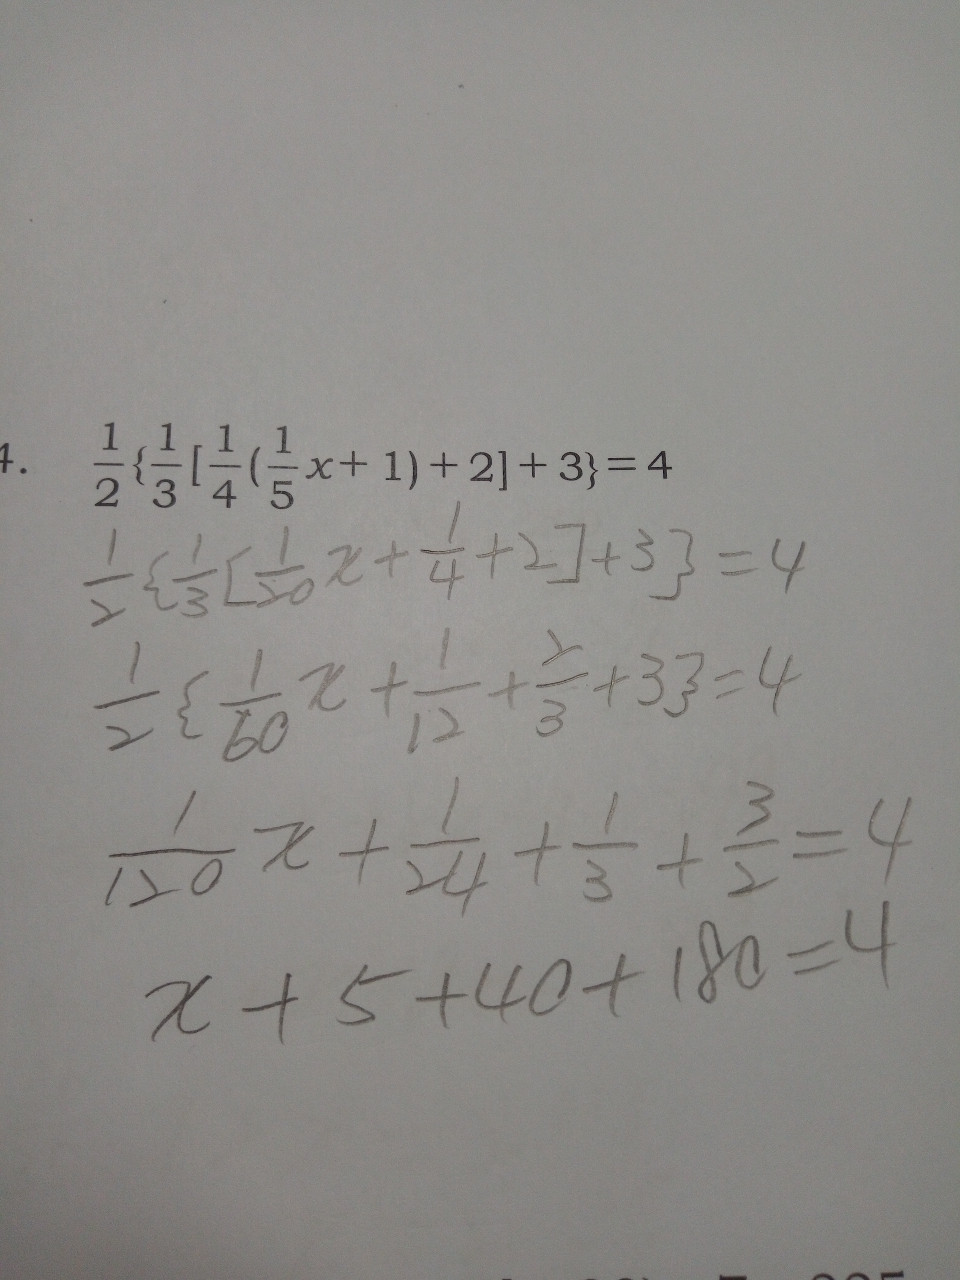 4. 1/2{1/3[1/4(1/5x+1)+2]+3}=4
1/2{1/3[1/20x+1/4+2]+3}=4
1/2{1/60x+1/12+2/3+3}=4
1/120x+1/24+1/3+3/2=4
x+5+40+180=4